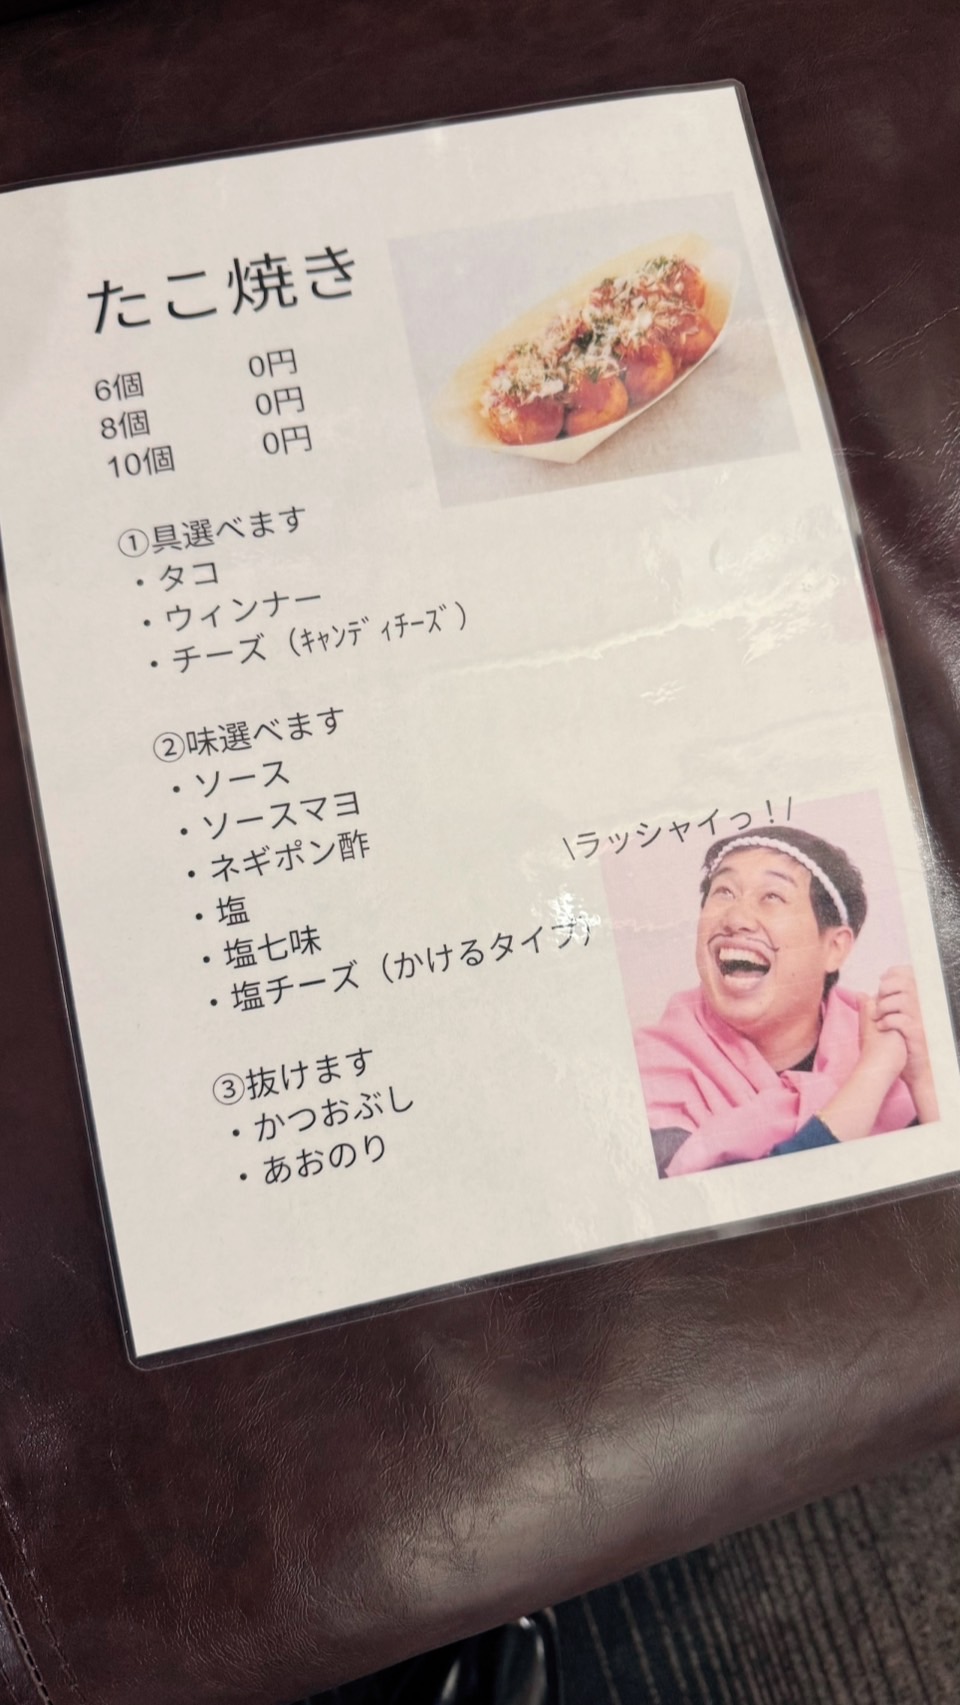 たこ焼き
6個 0円
8個 0円
10個 0円
①具選べます
・タコ
・ウィンナー
・チーズ（ｷｬﾝﾃﾞｨﾁｰｽﾞ）
②味選べます
・ソース
・ソースマヨ
・ネギポン酢
・塩
・塩七味
・塩チーズ（かけるタイプ）
\ラッシャイっ！/
③抜けます
・かつおぶし
・あおのり